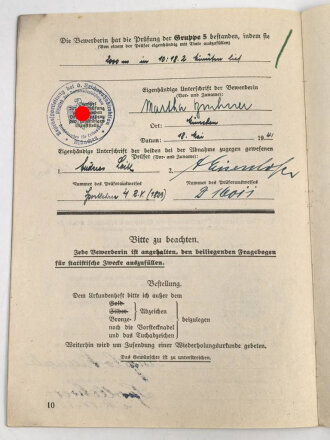 Die Bewerberin hat die Prüfung der Gruppe 5 bestanden, indem sie
(Von einem der Prüfer eigenhändig mit Tinte auszufüllen)
in 10:18.2 Minuten lief
Eigenhändige Unterschrift der Bewerberin
(Vor- und Zuname):
Martha
Ort:
München
Datum 18. Mai 1941
Eigenhändige Unterschrift der beiden bei der Abnahme zugegen gewesenen
Prüfer (Vor- und Zuname):
1. Andreas 2.
Nummer des Prüferausweises Nummer des Prüferausweises
Bitte zu beachten.
Jede Bewerberin ist angehalten, den beiliegenden Fragebogen
für statistische Zwecke auszufüllen.
Bestellung.
Dem Urkundenheft bitte ich außer dem
Gold-
Silber- Abzeichen
Bronze- beizulegen
noch die Vorstecknadel
und das Tuchabzeichen
Weiterhin wird um Zusendung einer Wiederholungsurkunde gebeten.
Das Gewünschte ist zu unterstreichen.
10